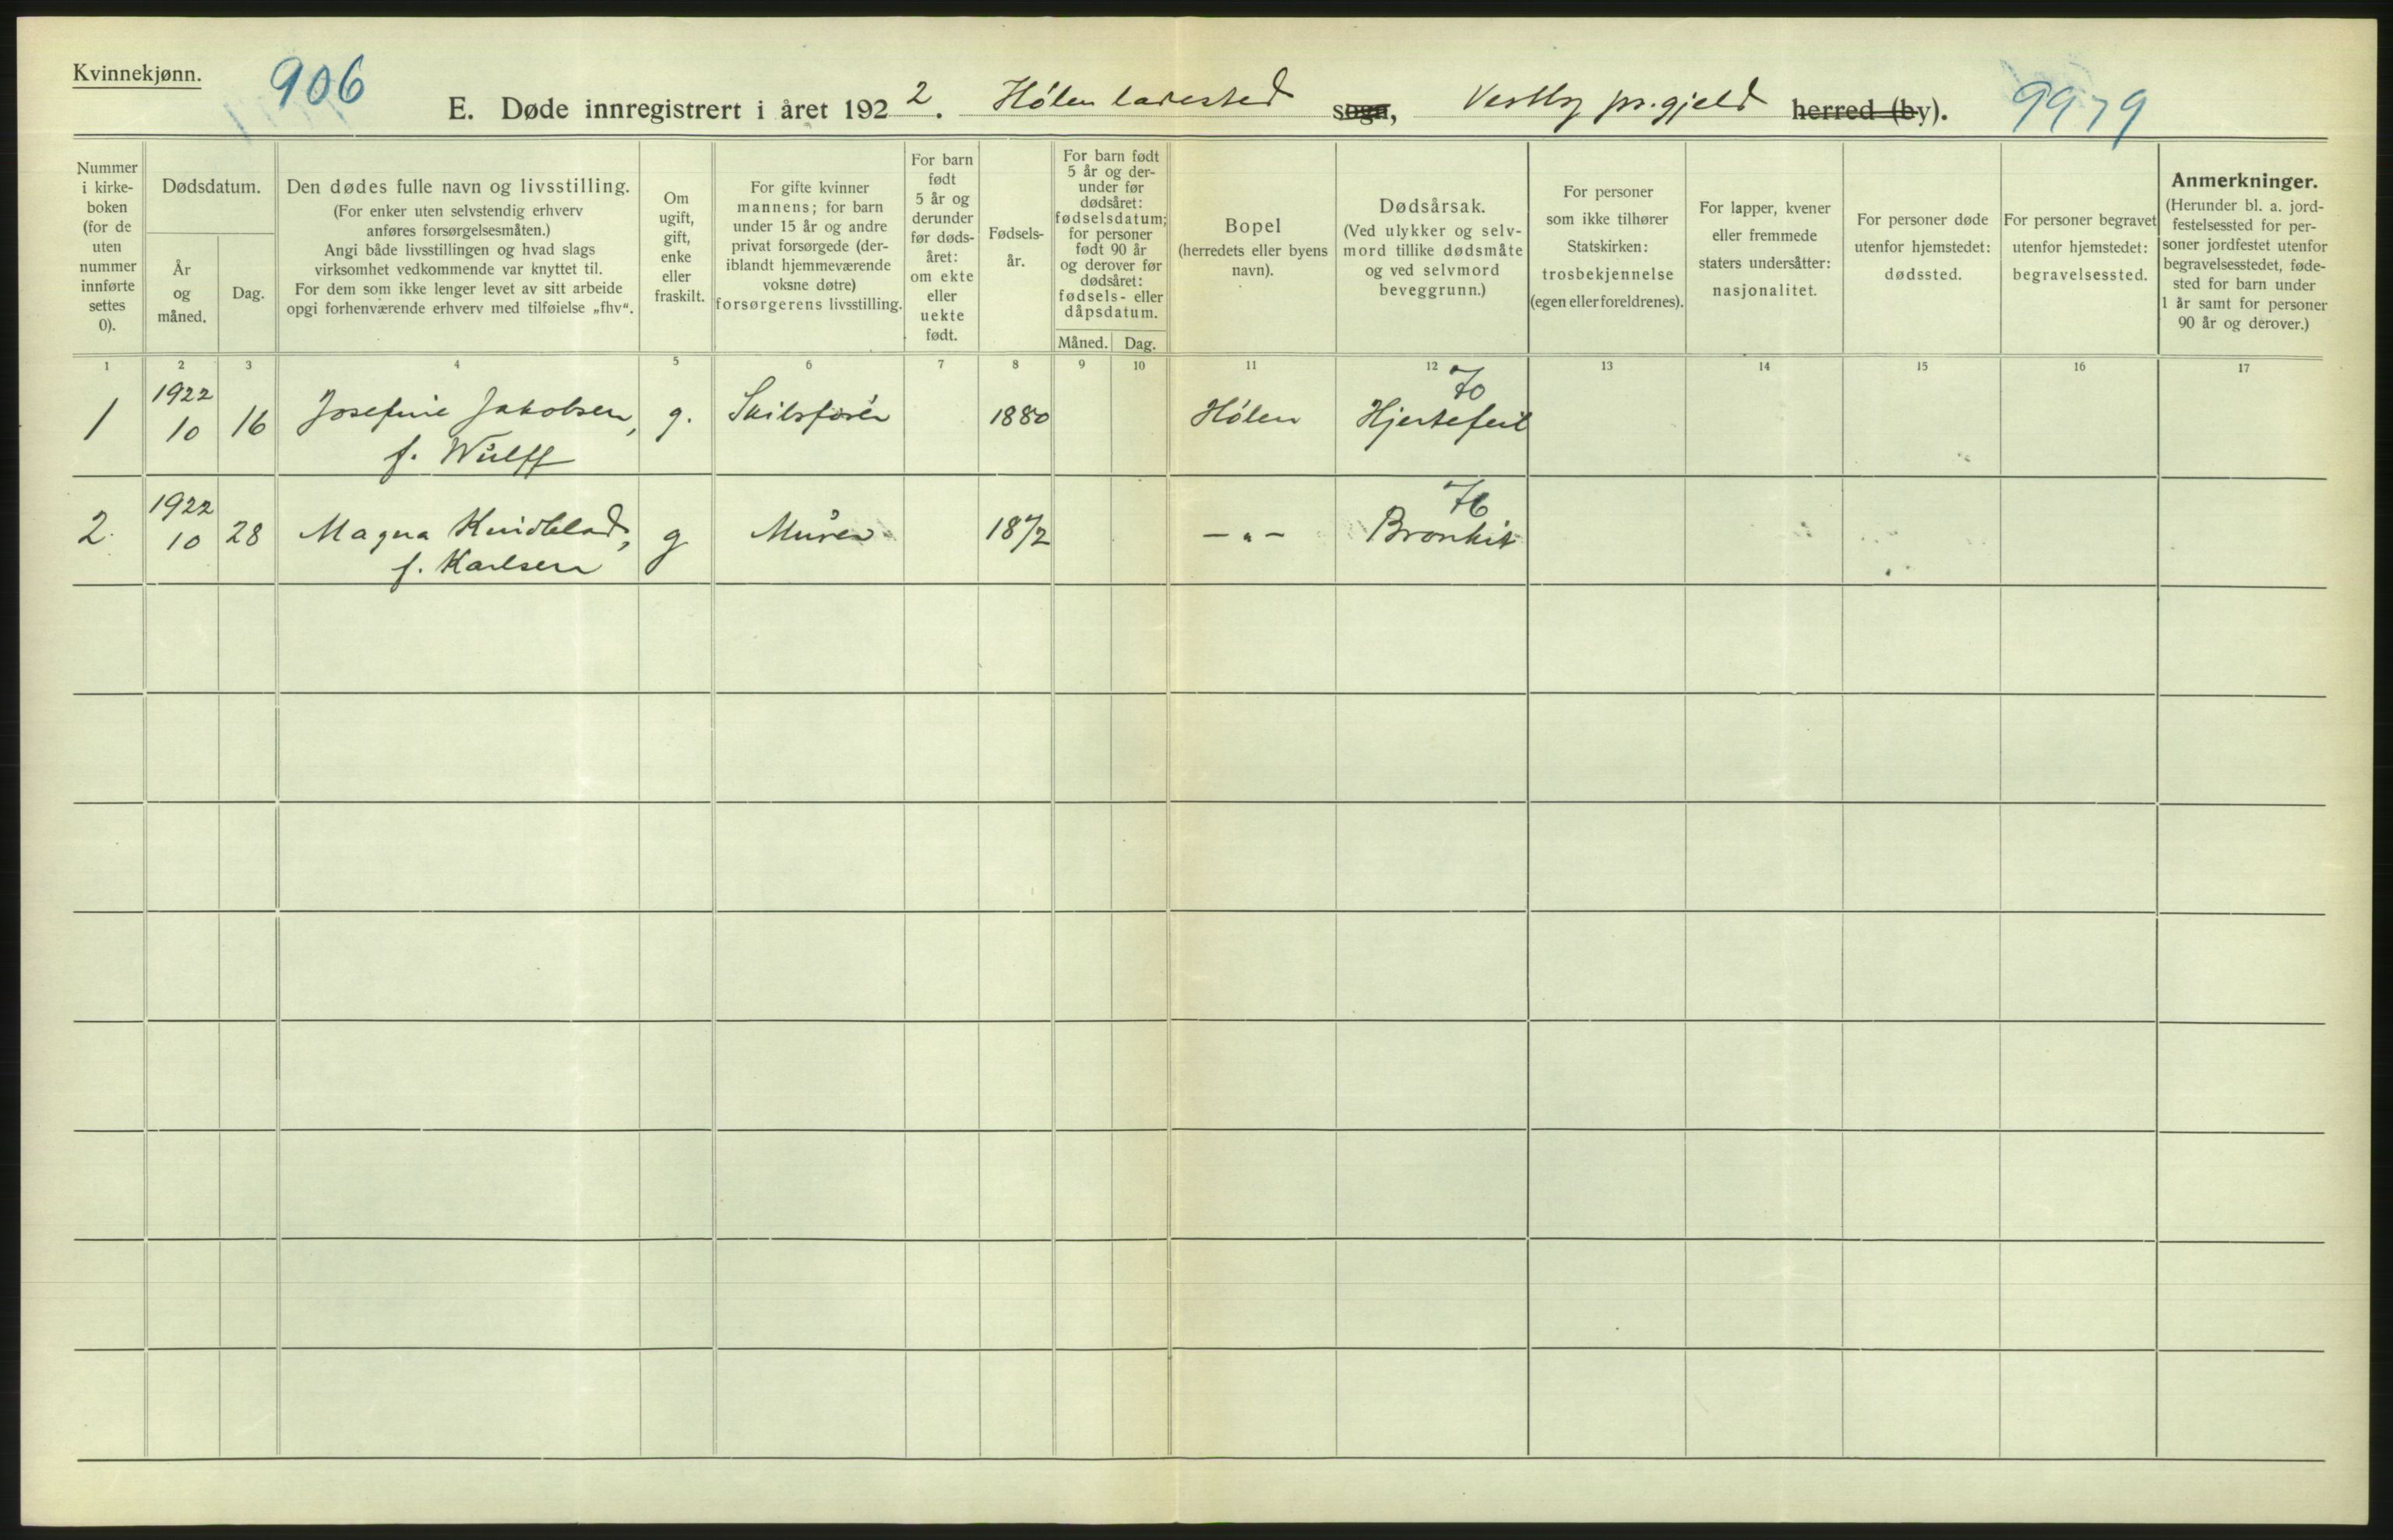 Kvinnekjønn.
906
E. Døde innregistrert i året 1922. Hølen ladested sogn, Vestby pr.gjeld herred (by).
9979
Nummer
i kirke-
boken
(for de
uten
nummer
innførte
settes
0).
Dødsdatum.
År
og
måned.
Dag.
Den dødes fulle navn og livsstilling.
(For enker uten selvstendig erhverv
anføres forsørgelsesmåten.)
Angi både livsstillingen og hvad slags
virksomhet vedkommende var knyttet til.
For dem som ikke lenger levet av sitt arbeide
opgi forhenværende erhverv med tilføielse „fhv“.
Om
ugift,
gift,
enke
eller
fraskilt.
For gifte kvinner
mannens; for barn
under 15 år og andre
privat forsørgede (der-
iblandt hjemmeværende
voksne døtre)
forsørgerens livsstilling.
For barn
født
5 år og
derunder
før døds-
året:
om ekte
eller
uekte
født.
Fødsels-
år.
For barn født
5 år og der-
under før
dødsåret:
fødselsdatum;
for personer
født 90 år
og derover før
dødsåret:
fødsels- eller
dåpsdatum.
Måned. Dag.
Bopel
(herredets eller byens
navn).
Dødsårsak.
(Ved ulykker og selv-
mord tillike dødsmåte
og ved selvmord
beveggrunn.)
For personer
som ikke tilhører
Statskirken:
trosbekjennelse
(egen eller foreldrenes).
For lapper, kvener
eller fremmede
staters undersåtter:
nasjonalitet.
For personer døde
utenfor hjemstedet:
dødssted.
For personer begravet
utenfor hjemstedet:
begravelsessted.
Anmerkninger.
(Herunder bl. a. jord-
festelsessted for per-
soner jordfestet utenfor
begravelsesstedet, føde-
sted for barn under
1 år samt for personer
90 år og derover.)
1 2 3 4 5 6 7 8 9 10 11 12 13 14 15 16 17
1922 70
1 10 16 Josefine Jakobsen, g. Skibsfører 1880 Hølen Hjertefeil
f. Wulff
1922 76
2. 10 28 Magna Kvidblad, g Murer 1872 – „ – Bronkit
f. Karlsen